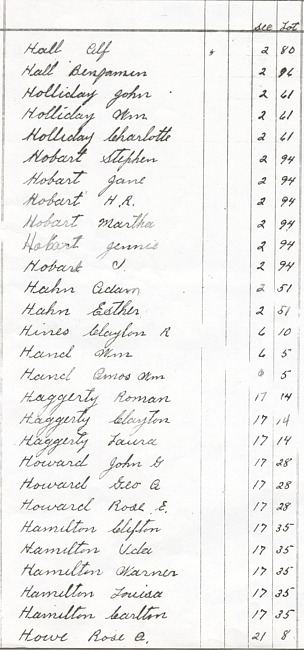 Sec Lot
Hall Alf 2 80
Hall Benjamin 2 96
Holliday John 2 61
Holliday Wm 2 61
Holliday Charlotte 2 61
Hobart Stephen 2 94
Hobart Jane 2 94
Hobart H.R. 2 94
Hobart Martha 2 94
Hobart Jennie 2 94
Hobart J. 2 94
Hahn Adam 2 51
Hahn Esther 2 51
Hines Clayton R 6 10
Hand Wm 6 5
Hand Amos Wm 6 5
Haggerty Roman 17 14
Haggerty Clayton 17 14
Haggerty Laura 17 14
Howard John G 17 28
Howard Geo A 17 28
Howard Rose E. 17 28
Hamilton Clifton 17 35
Hamilton Vida 17 35
Hamilton Warner 17 35
Hamilton Louisa 17 35
Hamilton Carlton 17 35
Howe Rose A. 21 8